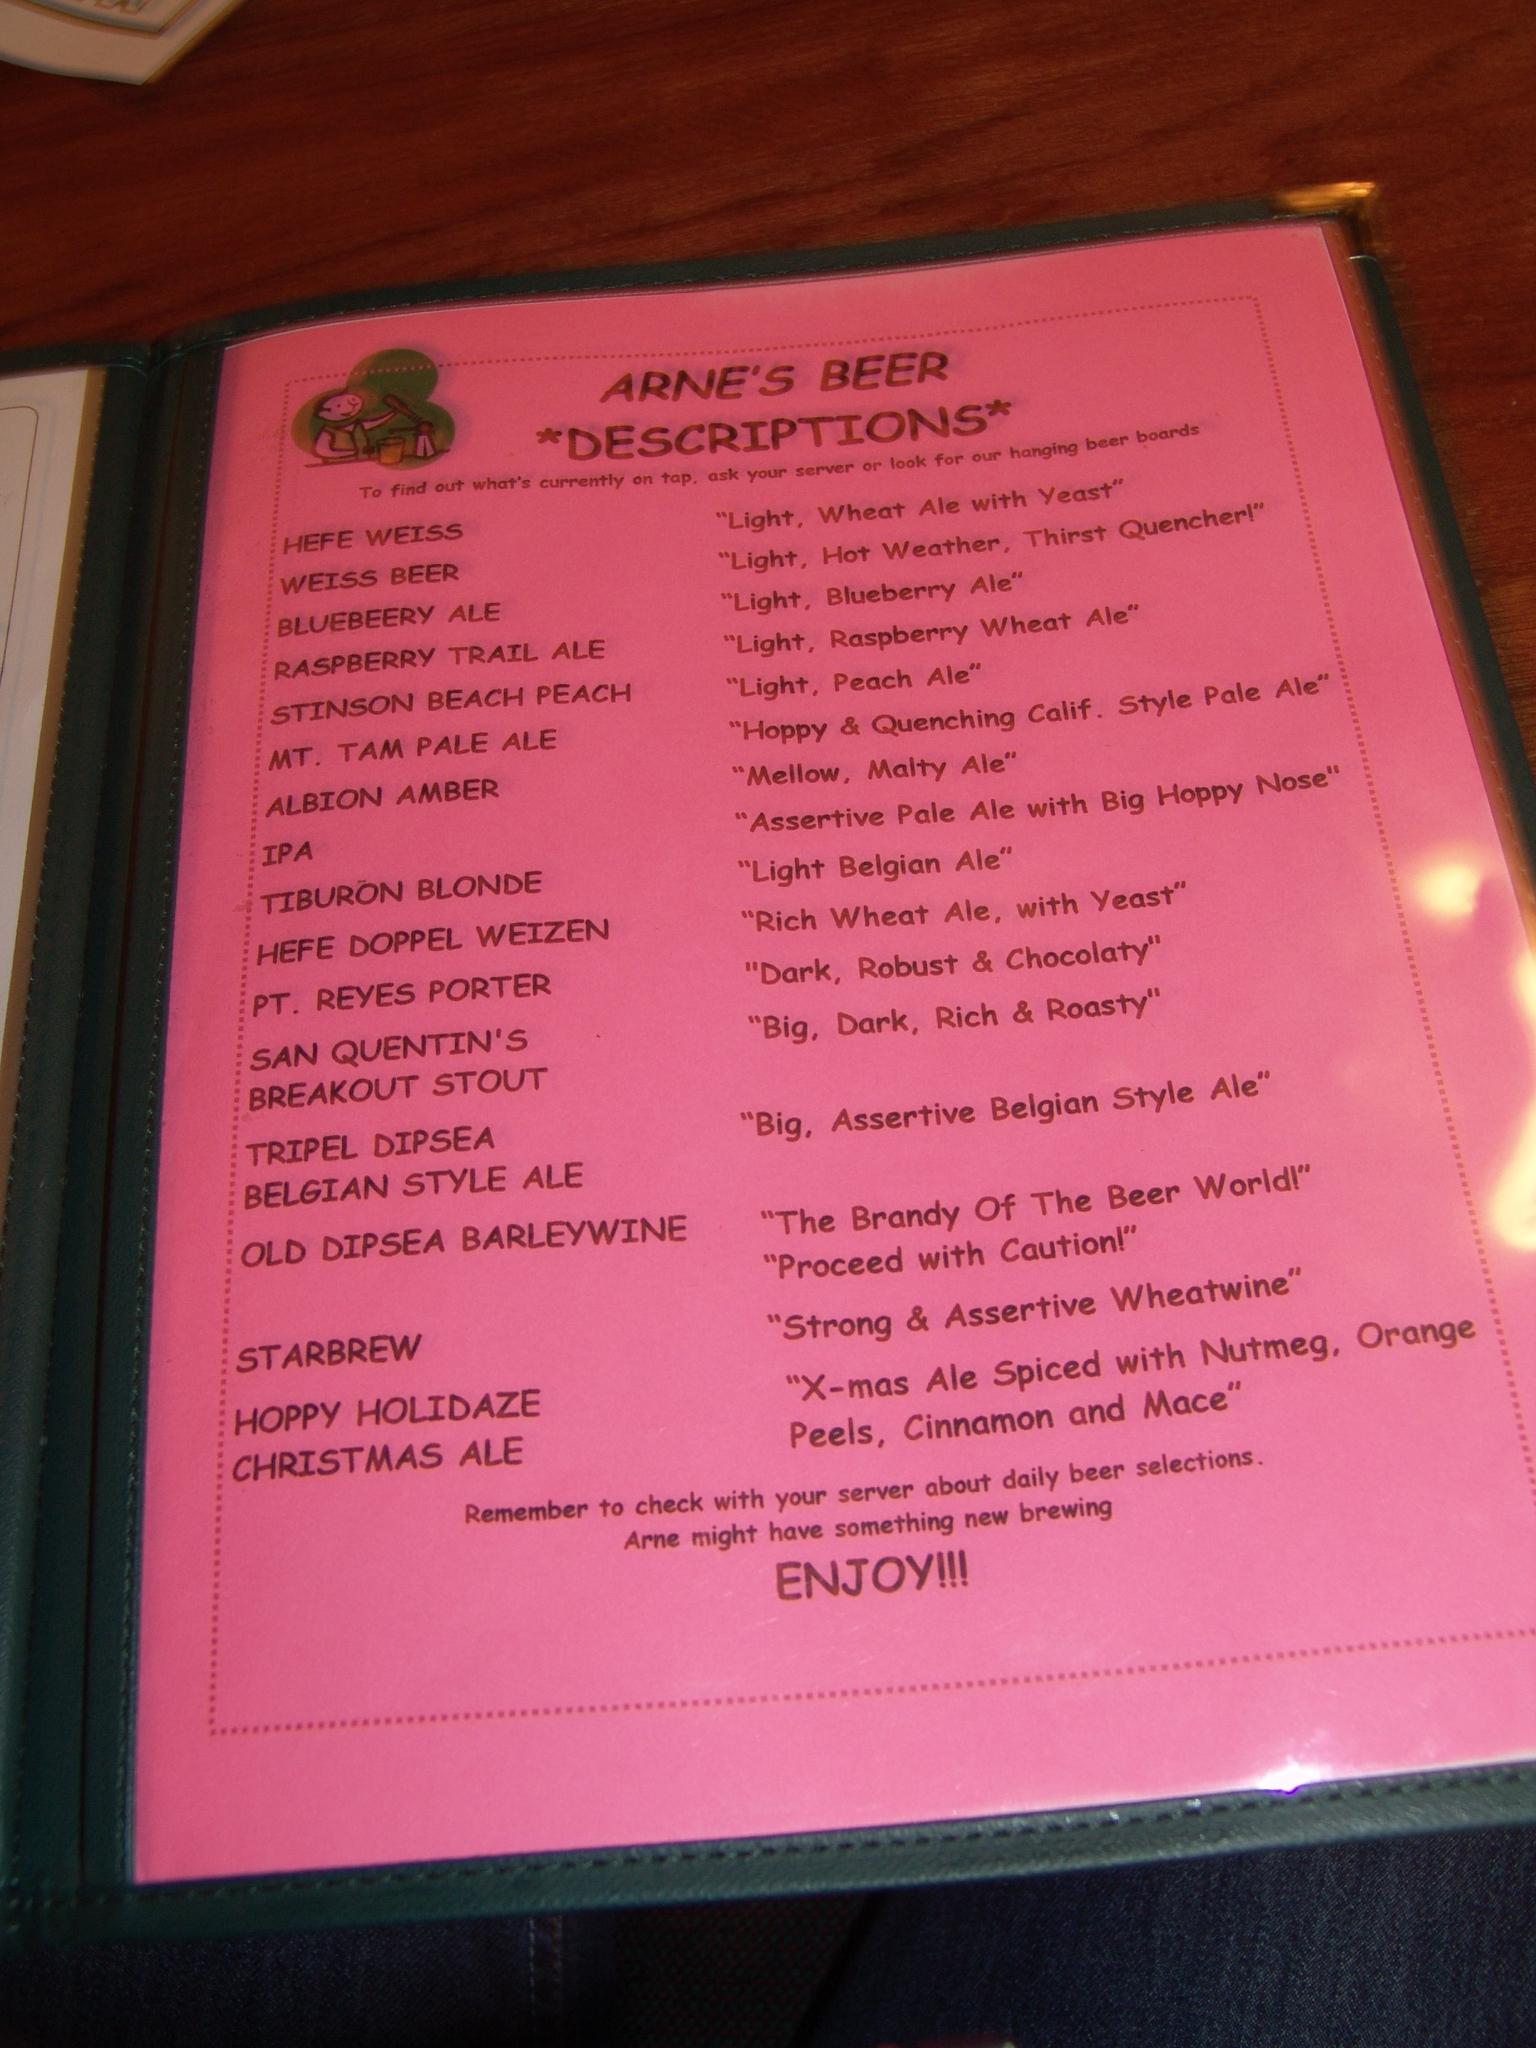 ARNE'S BEER
*DESCRIPTIONS*
To find out what's currently on tap, ask your server or look for our hanging beer boards
HEFE WEISS "Light, Wheat Ale with Yeast"
WEISS BEER "Light, Hot Weather, Thirst Quencher!"
BLUEBEERY ALE "Light, Blueberry Ale"
RASPBERRY TRAIL ALE "Light, Raspberry Wheat Ale"
STINSON BEACH PEACH "Light, Peach Ale"
MT. TAM PALE ALE "Hoppy & Quenching Calif. Style Pale Ale"
ALBION AMBER "Mellow, Malty Ale"
IPA "Assertive Pale Ale with Big Hoppy Nose"
TIBURON BLONDE "Light Belgian Ale"
HEFE DOPPEL WEIZEN "Rich Wheat Ale, with Yeast"
PT. REYES PORTER "Dark, Robust & Chocolaty"
SAN QUENTIN'S "Big, Dark, Rich & Roasty"
BREAKOUT STOUT
TRIPEL DIPSEA "Big, Assertive Belgian Style Ale"
BELGIAN STYLE ALE
OLD DIPSEA BARLEYWINE "The Brandy Of The Beer World!"
"Proceed with Caution!"
STARBREW "Strong & Assertive Wheatwine"
HOPPY HOLIDAZE "X-mas Ale Spiced with Nutmeg, Orange
CHRISTMAS ALE Peels, Cinnamon and Mace"
Remember to check with your server about daily beer selections.
Arne might have something new brewing
ENJOY!!!